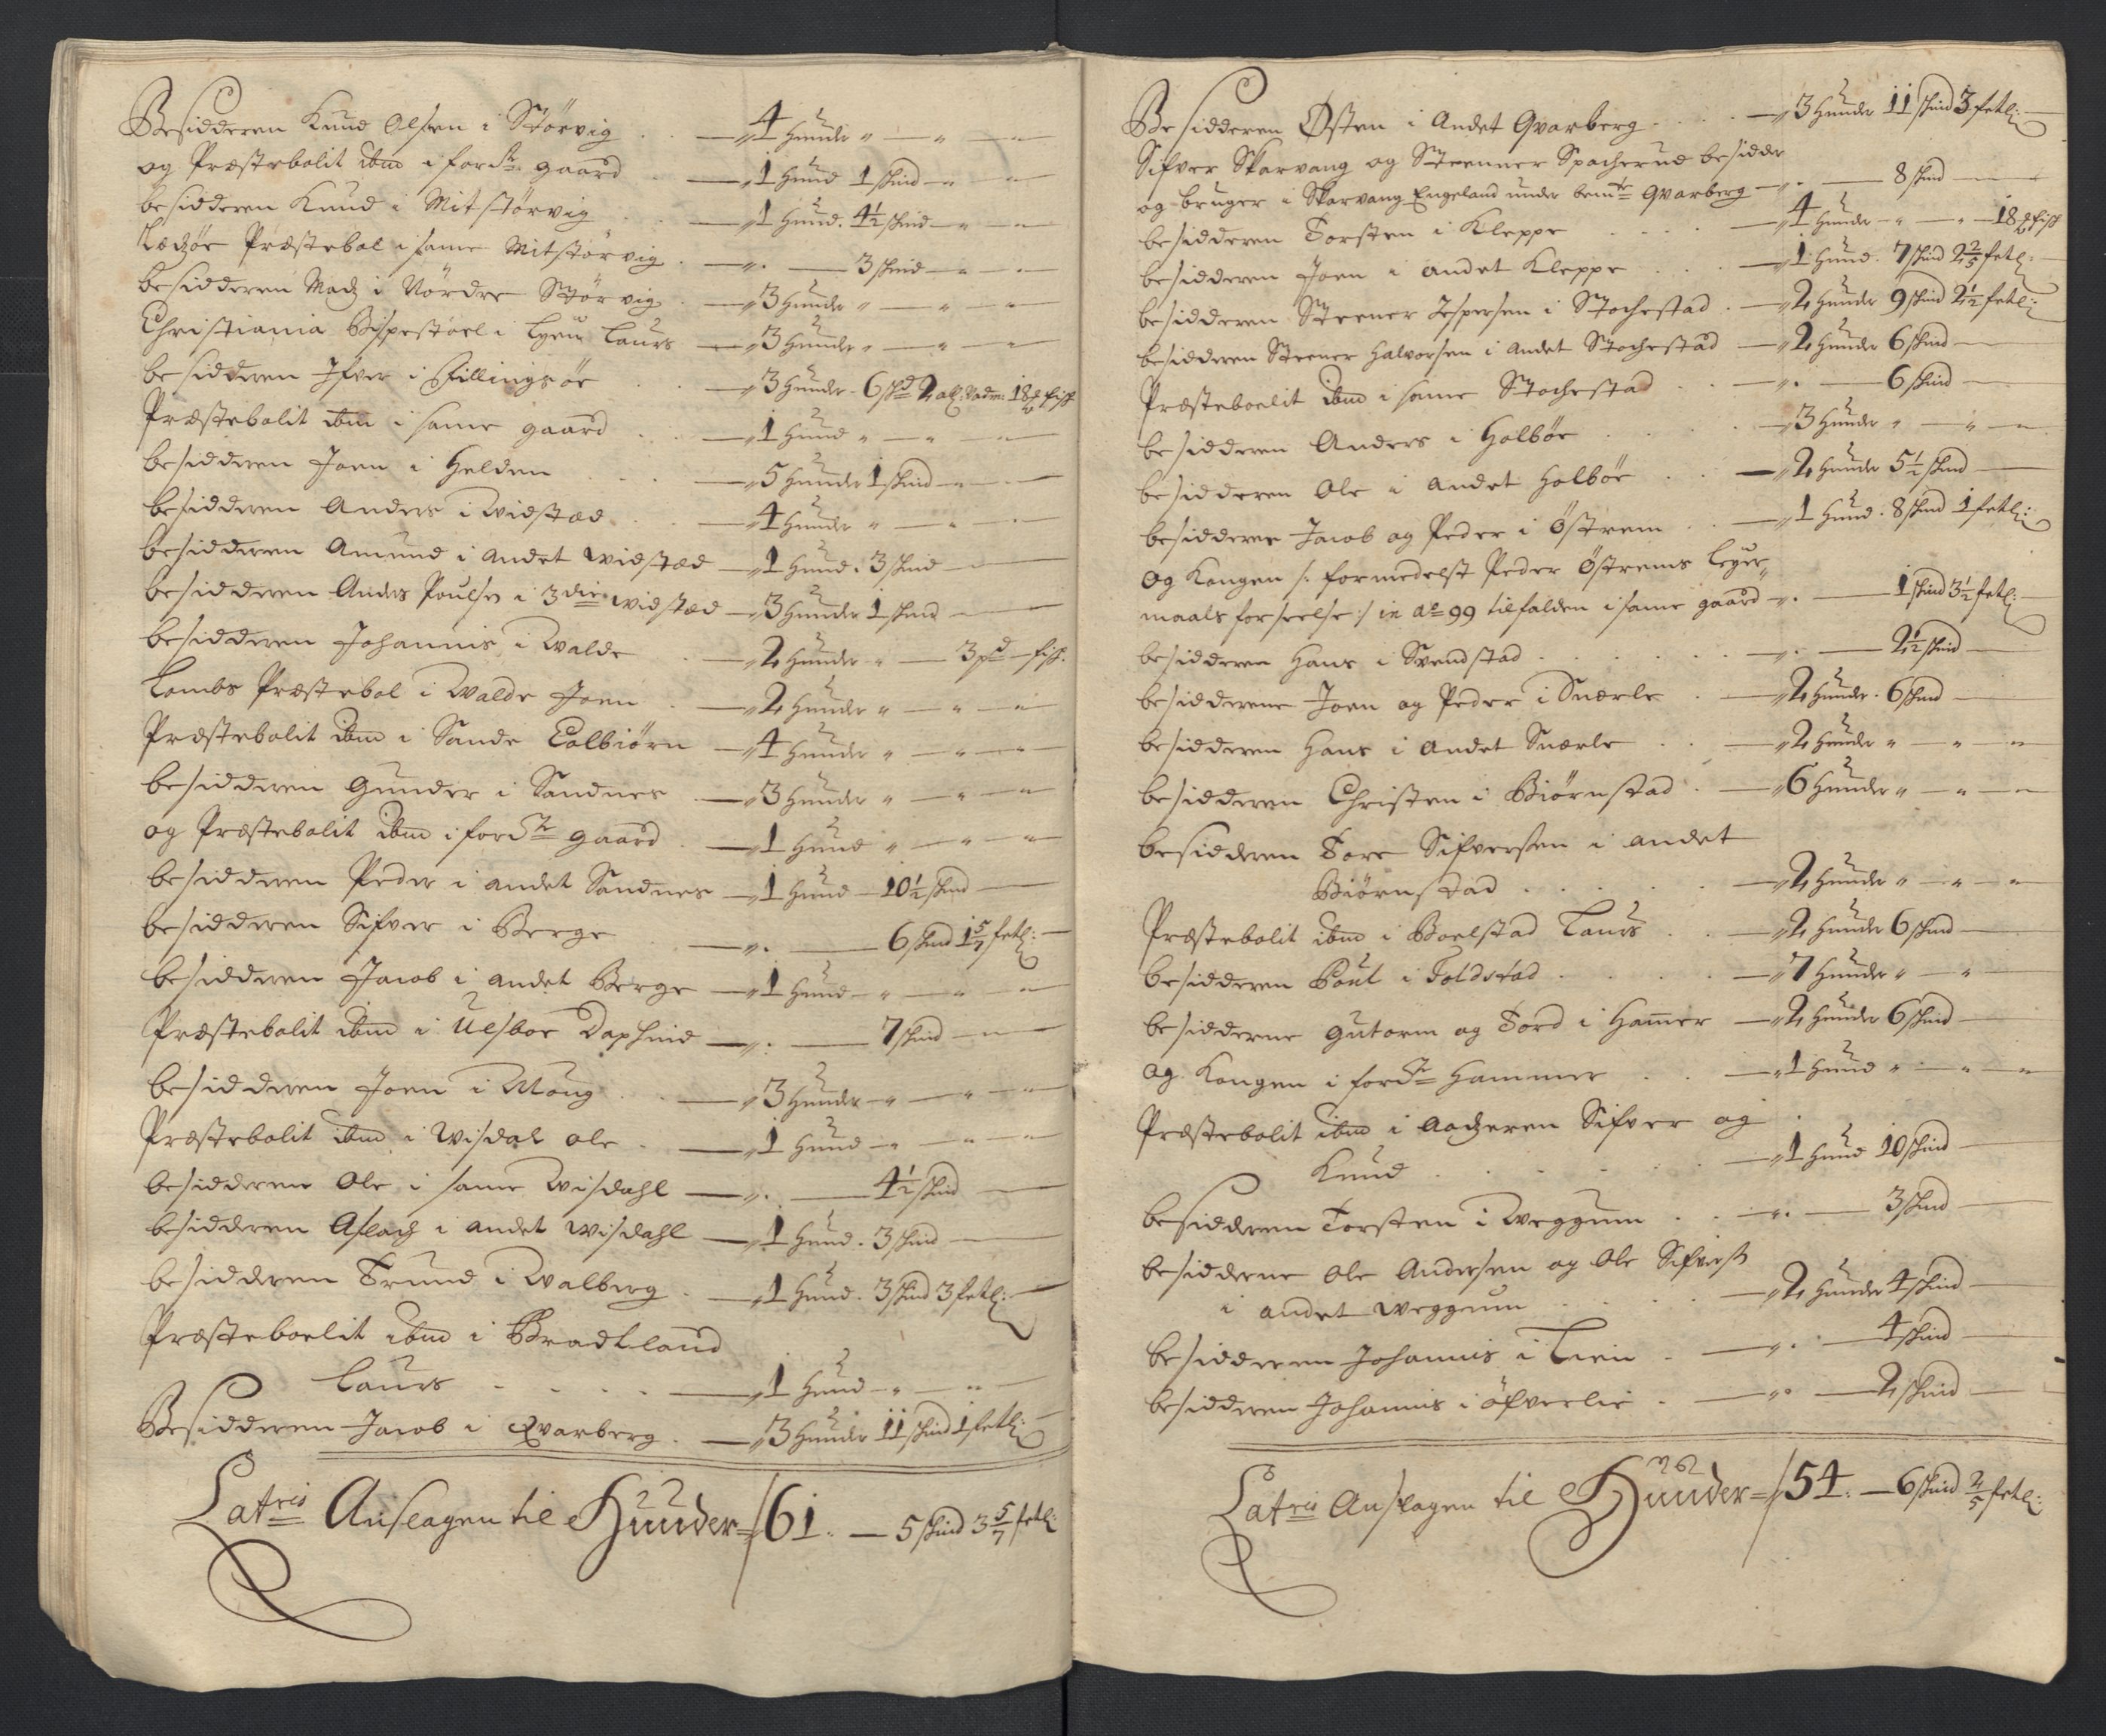 Besidderen Knud Olsen i Störvig — 4 Hunder
og Præstebolit ibm i fordte gaard — 1 Hund 1 skind
besidderen Knud i Mitstörvig — 1 Hund. 4½ skind
Lædzör Præstebol i same Mitstörvig — 3 skind
besidderen Madz i Nördre Störvig — 3 Hunder
Christiania Bispestoel i Lyen Laurs — 3 Hunder
besidderen Ifver i Fillingsöe — 3 Hunder - 6 skd 2 all: vadm: 18 fisk
Præstebolit ibm i same gaard — 1 Hund
besidderen Joen i Helden — 5 Hunder 1 skind
besidderen Anders i Widstæd — 4 Hunder
besidderen Amund i andet Widstæd — 1 Hund. 3 skind
besidderen Anders Poulsen i 3die Widstæd — 3 Hunder 1 skind
besidderen Johannis i Walde — 2 Hunder — 3 pd fisk.
Lombs Præstebol i Walde Joen — 2 Hunder
Præstebolit ibm i Sande Colbiörn — 4 Hunder
besidderen Gunder i Sandnes — 3 Hunder
og Præstebolit ibm i fordte gaard — 1 Hund
besidderen Peder i andet Sandnes — 1 Hund — 10½ skind
besidderen Sifver i Berge — 6 skind 1 5/7 fetl:
besidderen Jacob i andet Berge — 1 Hund
Præstebolit ibm i Ulsboe Daphind — 7 skind
besidderen Joen i Moug — 3 Hunder
Præstebolit ibm i Wisdal Ole — 1 Hund
besidderen Ole i same Wisdahl — 4½ skind
besidderen Aslach i andet Wisdahl — 1 Hund. 3 skind
besidderen Trund i Walberg — 1 Hund. 3 skind 3 fetl:
Præsteboelit ibm i Bradtland
Laurs — 1 Hund
Besidderen Jacob i Qvarberg — 3 Hunder 11 skind 1 fetl:
Latris Anslagen til Hunder 61. — 5 skind 3 5/7 fetl:
Besidderen Østen i Andet Qvarberg — 3 Hunder 11 skind 3 fetl:
Sifver Skarvang og Steenner Spacherud besidder
og bruger i Skarvang Engeland under bemte Qvarberg — 8 skind
besidderen Torsten i Kleppe — 4 Hunder — 18 fisk
besidderen Joen i andet Kleppe — 1 Hund. 7 skind 2 2/5 fetl:
besidderen Steener Jespersen i Stochestad — 2 Hunder 9 skind 2½ fetl:
besidderen Steener Halvorsen i andet Stochestad — 2 Hunder 6 skind
Præsteboelit ibm i same Stochestad — 6 skind
besidderen Anders i Holböe — 3 Hunder
besidderen Ole i andet Holböe — 2 Hunder 5½ skind
besidderne Jacob og Peder i Östrem — 1 Hund. 8 skind 1 fetl:
og Kongen /: formedelst Peder Östrems Leyer-
maals forseelse :/ in ao 99 tilfalden i same gaard — 1 skind 3½ fetl:
besidderen Hans i Svendstad — 2½ skind
besidderene Joen og Peder i Snerle — 2 Hunder. 6 skind
besidderen Hans i andet Snerle — 2 Hunder
besidderen Christen i Biörnstad — 6 Hunder
besidderen Tore Sifversen i andet
Biörnstad — 2 Hunder
Præstebolit ibm i Boelstad Laurs — 2 Hunder 6 skind
besidderen Poul i Toldstad — 7 Hunder
besidderne Gutorm og Tord i Hamer — 2 Hunder 6 skind
og Kongen i fordte Hammer — 1 Hund
Præstebolit ibm i Aadzeren Sifver og
Knud — 1 Hund 10 skind
besidderen Torsten i Weggum — 3 skind
besidderne Ole Andersen og Ole Sifvers:
i andet Weggum — 2 Hunder 4 skind
besidderen Johannis i Lien — 4 skind
besidderen Johannis i öfverlie — 2 skind
Latris Anslagen til Hunder 54. — 6 skind 2/5 fetl: